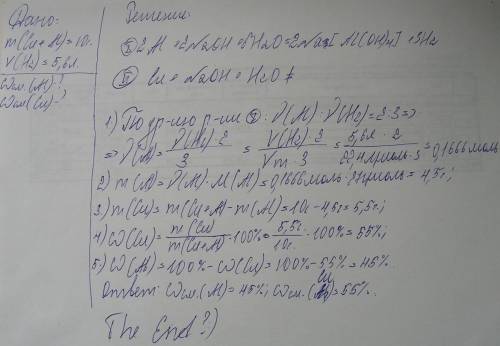 Дано:
m(Cu+Al)=10г.
V(H₂)=5,6л.
ωсм.(Al)-?
ωсм.(Cu)-?
Решение:
Ⓘ 2Al+2NaOH+6H₂O=2Na[Al(OH)₄]+3H₂
Ⓘ Ⓘ Cu+NaOH+H₂O≠
1) По ур-ию р-ии Ⓘ: ν(Al):ν(H₂)=2:3=>
=> ν(Al)=ν(H₂)·2/3=V(H₂)·2/Vm·3=5,6л·2/22,4л/моль·3=0,1666моль
2) m(Al)=ν(Al)·M(Al)=0,1666моль·27г/моль=4,5г;
3) m(Cu)=m(Cu+Al)-m(Al)=10г-4,5г=5,5г;
4) ω(Cu)=m(Cu)/m(Cu+Al)·100%=5,5г/10г·100%=55%;
5) ω(Al)=100%-ω(Cu)=100%-55%=45%.
Ответ: ωсм.(Al)=45%; ωсм.(Cu)=55%.
The End?)